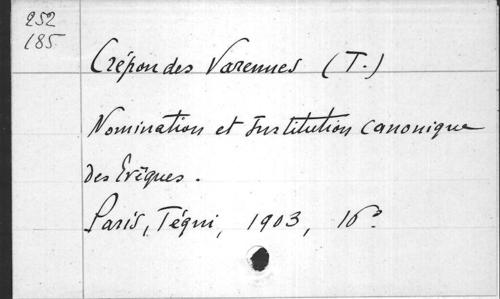 252
185
Crépon des Varennes (T.)
Nomination et Institution canonique
des Evêques.
Paris, Téqui, 1903, 16º